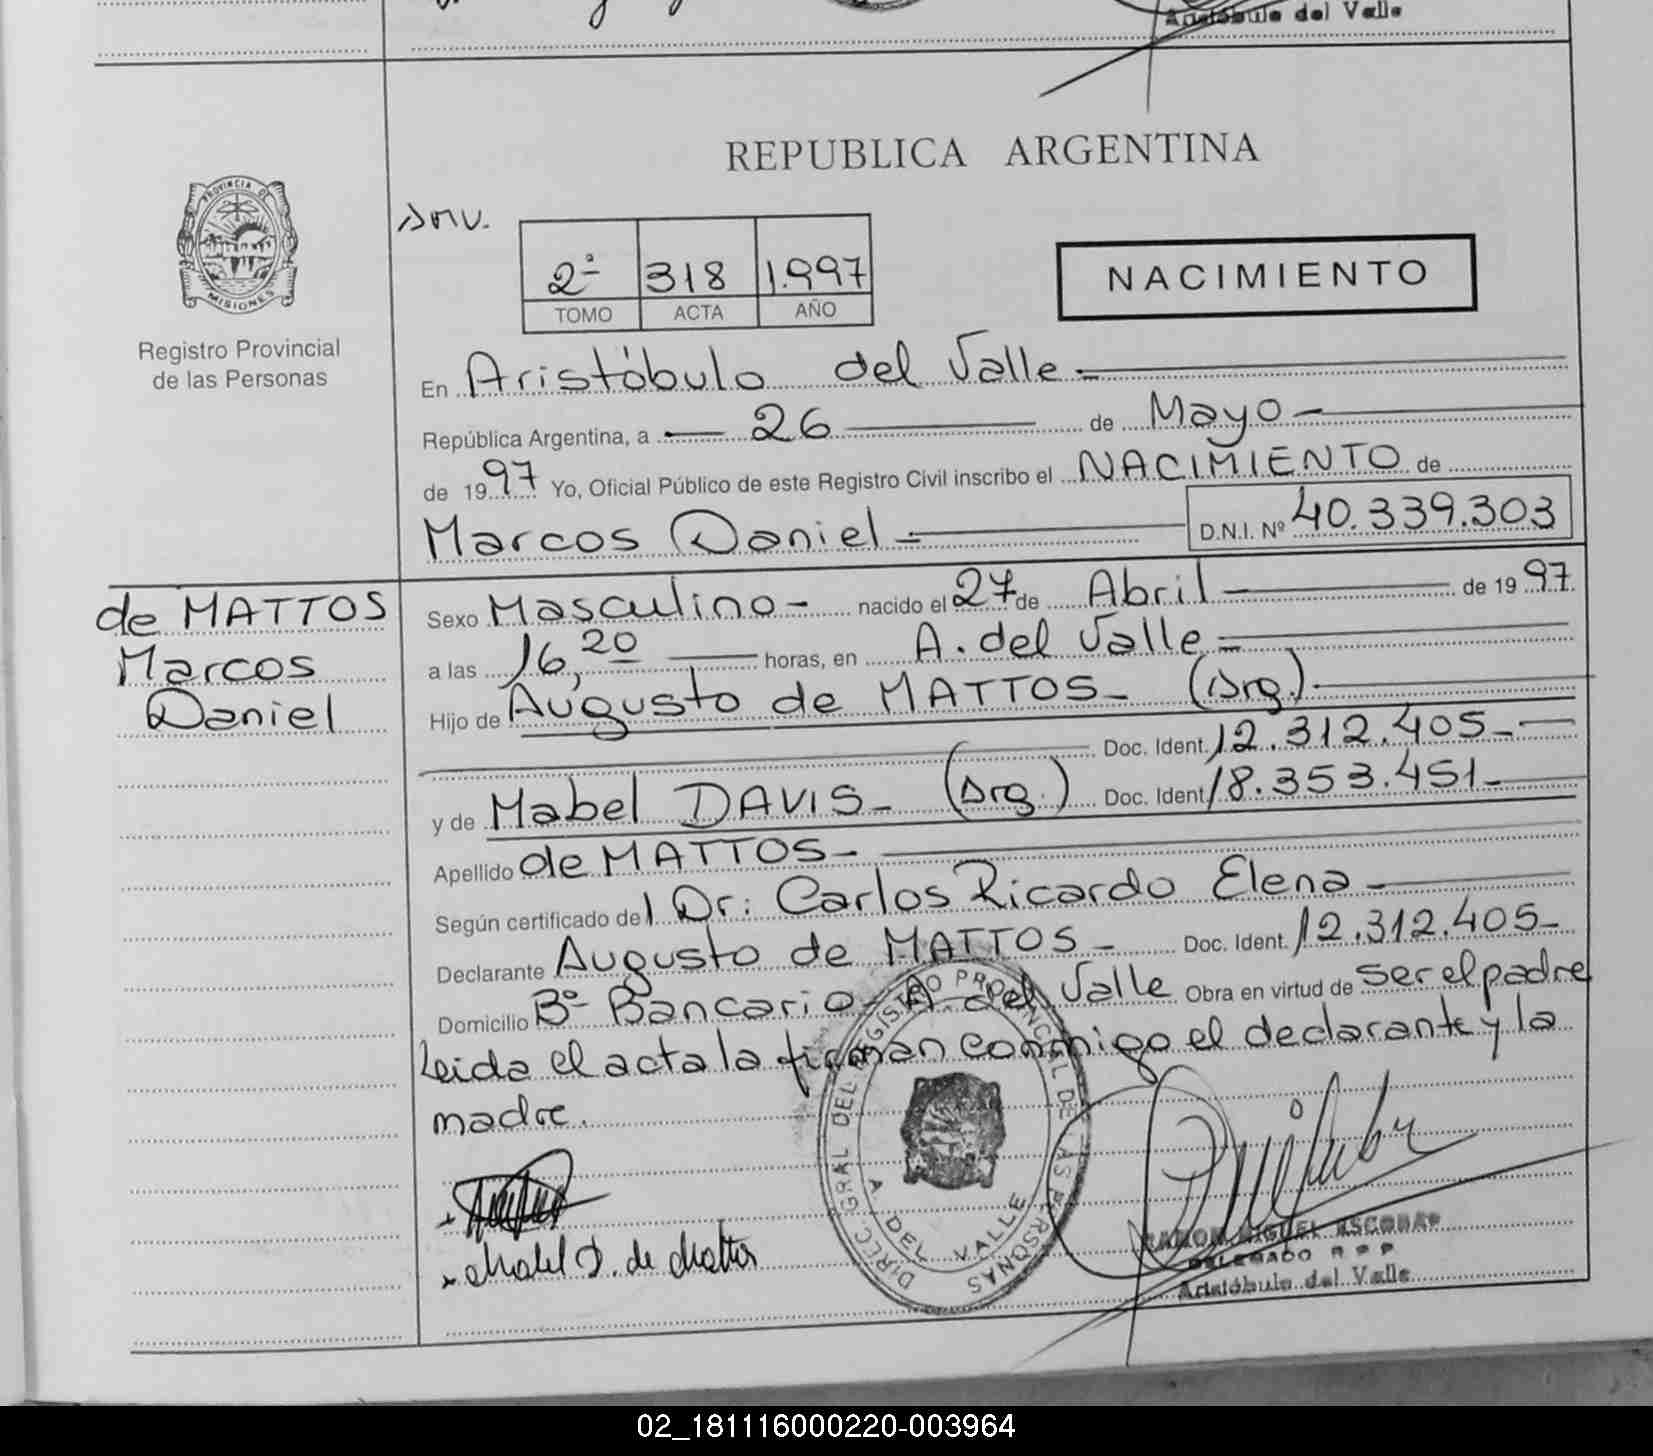 Aristóbulo del Valle
REPUBLICA ARGENTINA
PROVINCIA DE
MISIONES
Registro Provincial
de las Personas
2º 318 1.997
TOMO ACTA AÑO
NACIMIENTO
En Aristóbulo del Valle
República Argentina, a 26 de Mayo
de 1997 Yo, Oficial Público de este Registro Civil inscribo el NACIMIENTO de
Marcos Daniel D.N.I. Nº 40.339.303
de MATTOS
Marcos
Daniel
Sexo Masculino nacido el 27 de Abril de 1997
a las 16,20 horas, en A. del Valle
Hijo de Augusto de MATTOS (Arg.)
Doc. Ident. 12.312.405
y de Mabel DAVIS (Arg.) Doc. Ident 18.353.451
Apellido de MATTOS
Según certificado del Dr: Carlos Ricardo Elena
Declarante Augusto de MATTOS Doc. Ident. 12.312.405
Domicilio Bº Bancario A. del Valle Obra en virtud de ser el padre
Leida el acta la firman conmigo el declarante y la
madre.
DIREC. GRAL DEL REGISTRO PROVINCIAL DE LAS PERSONAS
A. DEL VALLE
Mabel D. de Mattos
RAMON MIGUEL ESCOBAR
DELEGADO R P P
Aristóbulo del Valle
02_181116000220-003964